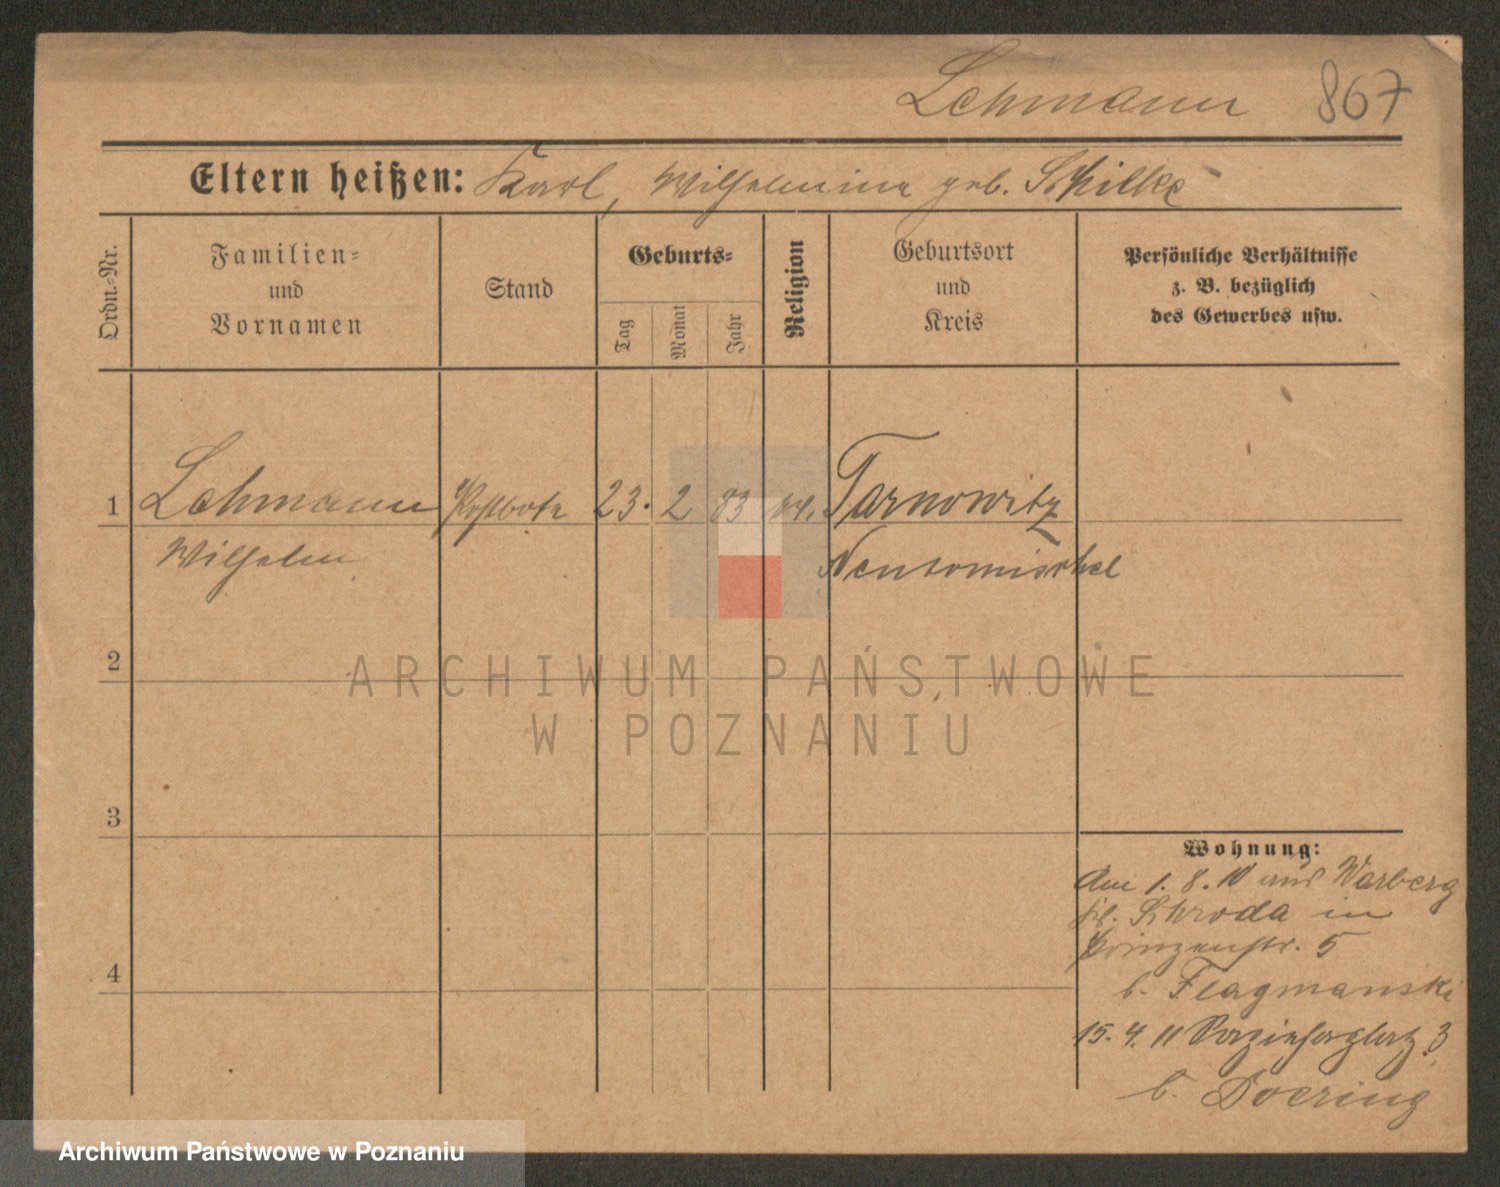 Lehmann 867
Eltern heißen: Karl, Wilhelmine geb. Schilke
Ordn.-Nr.
Familien-
und
Vornamen
Stand
Geburts-
Tag
Monat
Jahr
Religion
Geburtsort
und
Kreis
Persönliche Verhältnisse
z. B. bezüglich
des Gewerbes usw.
1 Lehmann Postbote 23. 2 83 ev. Tarnowitz
Wilhelm Neutomischel
2
3
4
Wohnung:
Am 1. 8. 10 aus Warberg
Schroda in
Prinzenstr. 5
b. Flagmanski
15. 4. 11 3
b. Doering
ARCHIWUM PAŃSTWOWE
W POZNANIU
Archiwum Państwowe w Poznaniu